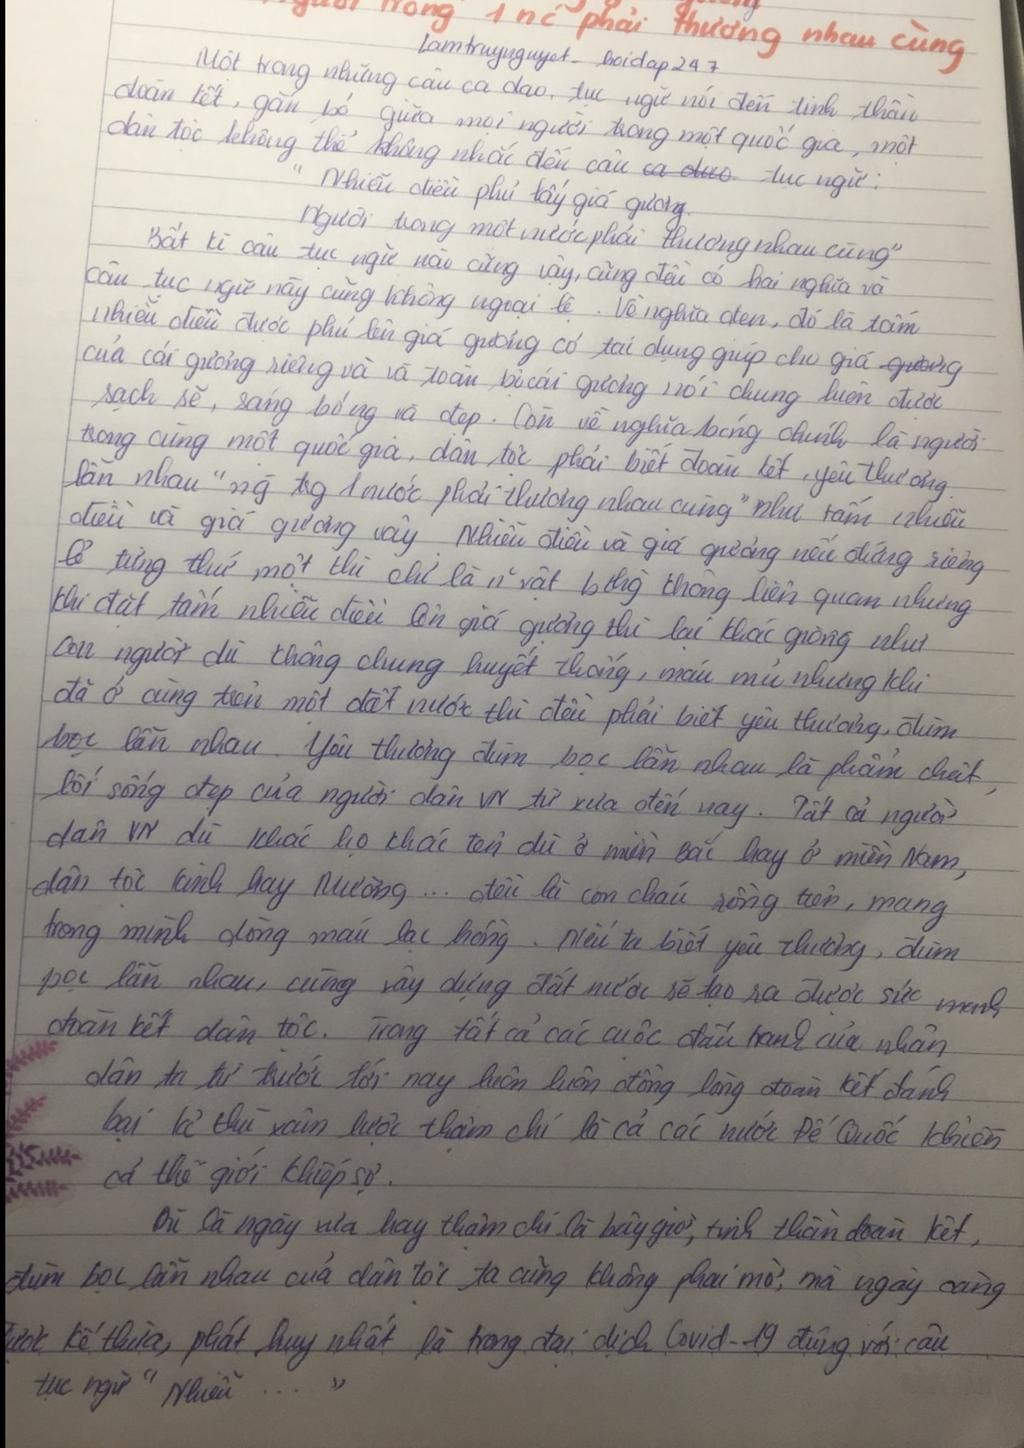 Người trong 1 nc phải thương nhau cùng
Lamtruynguyet - hoidap247
Một trong những câu ca dao, tục ngữ nói đến tinh thần
đoàn kết, gắn bó giữa mọi người trong một quốc gia, một
dân tộc không thể không nhắc đến câu ca dao tục ngữ:
" Nhiễu điều phủ lấy giá gương
Người trong một nước phải thương nhau cùng"
Bất kì câu tục ngữ nào cũng vậy, cũng đều có hai nghĩa và
câu tục ngữ này cũng không ngoại lệ. Về nghĩa đen, đó là tấm
nhiễu điều được phủ lên giá gương có tác dụng giúp cho giá gương
của cái gương riêng và và toàn bộ cái gương nói chung luôn được
sạch sẽ, sáng bóng và đẹp. Còn về nghĩa bóng chính là người
trong cùng một quốc gia, dân tộc phải biết đoàn kết, yêu thương
lẫn nhau "ng trg 1 nước phải thương nhau cùng" như tấm nhiễu
điều và giá gương vậy. Nhiễu điều và giá gương nếu đứng riêng
lẻ từng thứ một thì chỉ là vật không liên quan nhưng
khi đặt tấm nhiễu điều lên giá gương thì lại khác giống như
con người dù không chung huyết thống, máu mủ nhưng khi
đã ở cùng trên một đất nước thì đều phải biết yêu thương, đùm
bọc lẫn nhau. Yêu thương đùm bọc lẫn nhau là phẩm chất,
lối sống đẹp của người dân VN từ xưa đến nay. Tất cả người
dân VN dù khác họ khác tên dù ở miền Bắc hay ở miền Nam,
dân tộc kinh hay Mường ... đều là con cháu rồng tiên, mang
trong mình dòng máu lạc hồng. Nếu ta biết yêu thương, đùm
bọc lẫn nhau, cùng xây dựng đất nước sẽ tạo ra được sức mạnh
đoàn kết dân tộc. Trong tất cả các cuộc đấu tranh của nhân
dân ta từ trước tới nay luôn luôn đồng lòng đoàn kết đánh
bại kẻ thù xâm lược thậm chí là cả các nước Đế Quốc khiến
cả thế giới khiếp sợ.
Dù là ngày xưa hay thậm chí là bây giờ, tinh thần đoàn kết,
đùm bọc lẫn nhau của dân tộc ta cũng không phai mờ, mà ngày càng
được kế thừa, phát huy nhất là trong đại dịch Covid-19 đúng với câu
tục ngữ " Nhiễu .... "